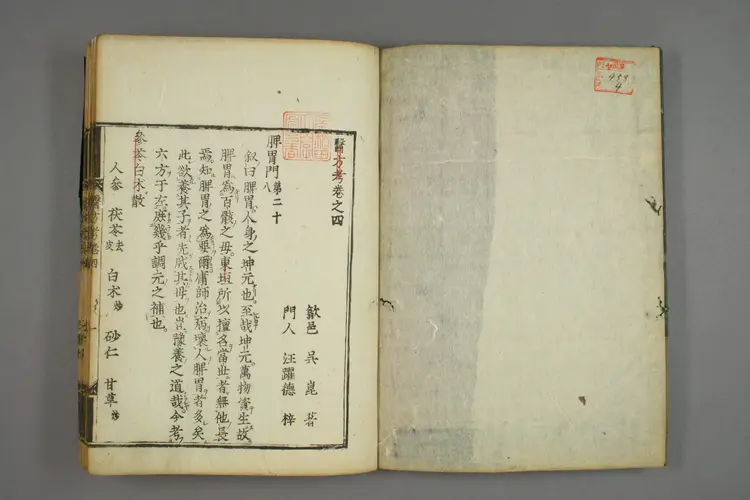 醫方考卷之四
歙邑 吳 崑 著
門人 汪躍德 梓
脾胃門第二十八
叙曰脾胃人身之坤元也至哉坤元萬物資生故
脾胃為百骸之母東垣所以擅名當世者無他長
焉知脾胃之為要爾庸師治病壞人脾胃者多矣
此欲養其子者先戕其母也豈豫養之道哉今考
六方于左庶幾乎調元之補也
參苓白朮散
人參 茯苓去皮 白朮炒 砂仁 甘草炒
459
4